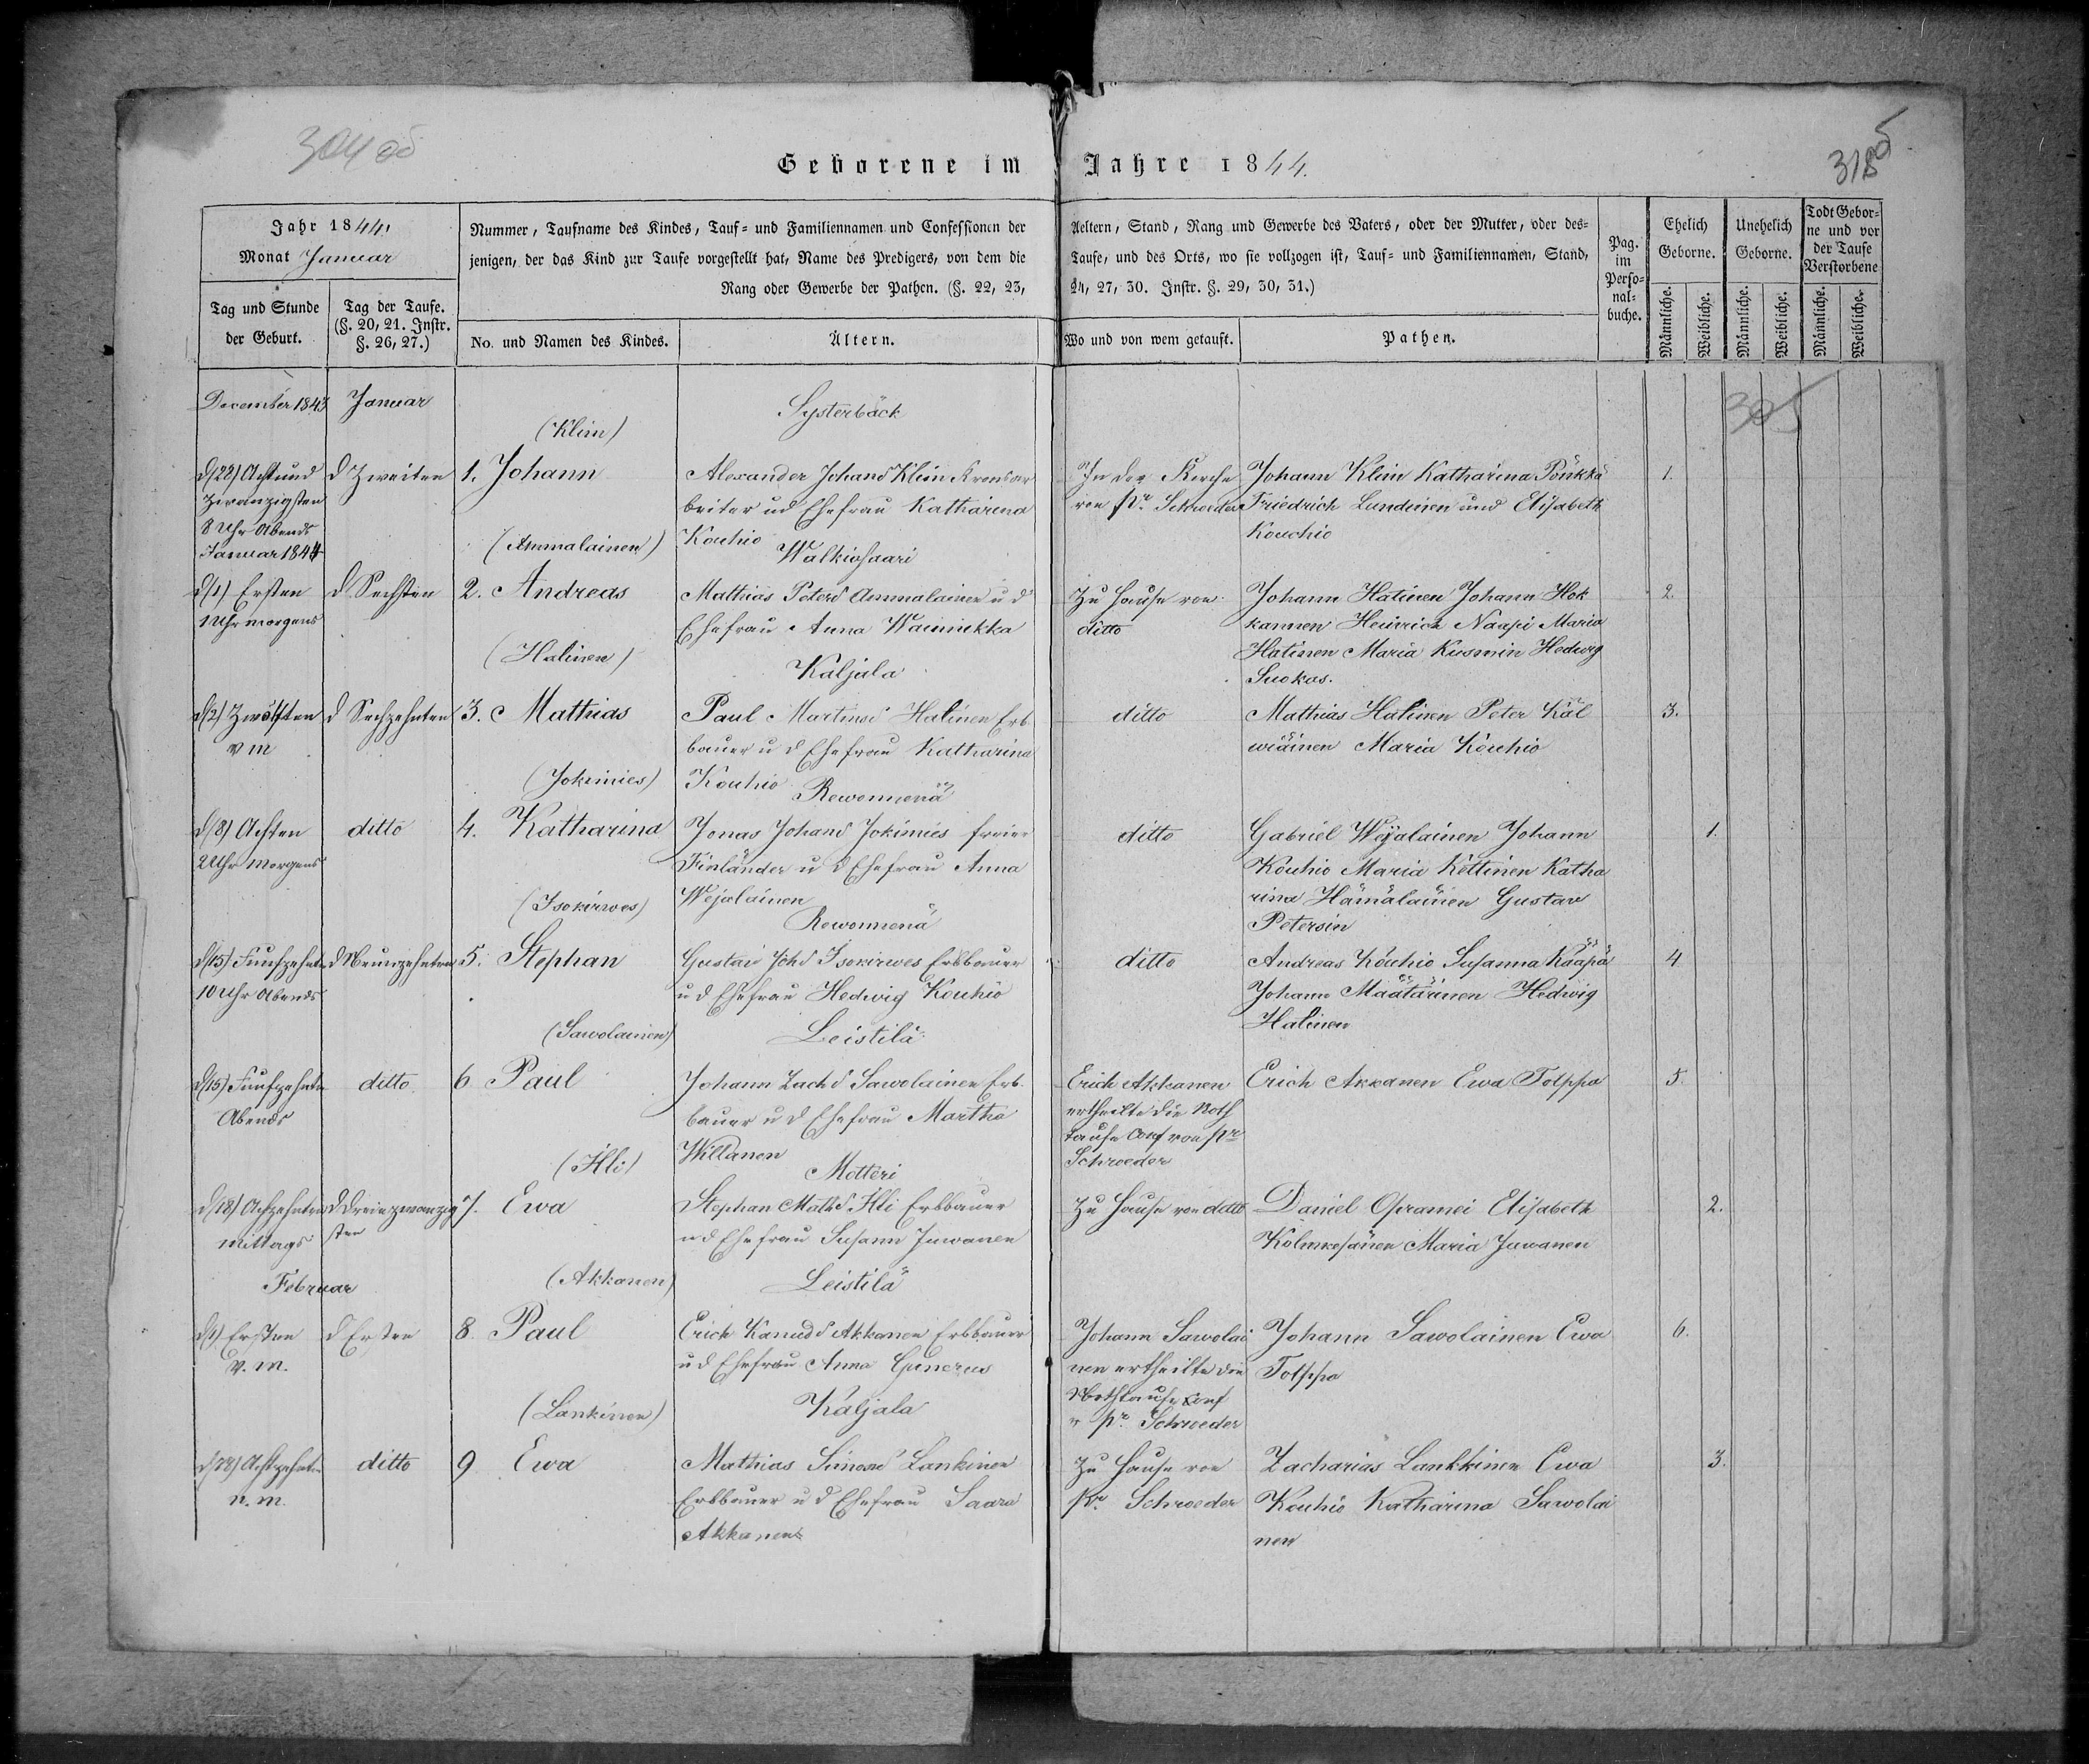 304 об
Geborene im Jahre 1844.
Jahr 1844.
Monat Januar
Nummer, Taufname des Kindes, Tauf- und Familiennamen und Confessionen der
jenigen, der das Kind zur Taufe vorgestellt hat, Name des Predigers, von dem die
Rang oder Gewerbe der Pathen. (§. 22, 23,
Aeltern, Stand, Rang und Gewerbe des Vaters, oder der Mutter, oder des-
Taufe, und des Orts, wo sie vollzogen ist, Tauf- und Familiennamen, Stand,
24, 27, 30. Instr. §. 29, 30, 31.)
Pag.
im
Perso-
nal-
buche.
Ehelich
Geborne.
Unehelich
Geborne.
Todt Gebor-
ne und vor
der Taufe
Verstorbene
Tag und Stunde
der Geburt.
Tag der Taufe.
(§. 20, 21. Instr.
§. 26, 27.)
No. und Namen des Kindes.
Ältern.
Wo und von wem getauft.
Pathen.
Männliche.
Weibliche.
Männliche.
Weibliche.
Männliche.
Weibliche.
December 1843
Januar
(Klim)
Systerbäck
305
d(28) Acht und
zwanzigsten
8 Uhr Abends
d Zweiten
1. Johann
Alexander Johans Klim Kronsar
beiter u d Ehefrau Katharina
Kouhio
In der Kirche
von Pr. Schroeder
Johann Klim Katharina Pönkkä
Friedrich Lundinen und Elisabeth
Kouchio
1.
Januar 1844
(Ammalainen)
Walkiasaari
d(1) Ersten
1 Uhr morgens
d Sechsten
2. Andreas
Mathias Peters Ammalainen u d
Ehefrau Anna Wainikka
Zu Hause von
ditto
Johann Hatinen Johann Hok
kannen Heinrich Naapi Maria
Hatinen Maria Kusmin Hedwig
Suokas.
2.
(Halinen)
Kaljala
d(12) Zwölften
v m
d Sechzehnten
3. Mathias
Paul Martins Halinen Erb
bauer u d Ehefrau Katharina
Kouhio
ditto
Mathias Halinen Peter Käl
wiäinen Maria Kouhio
3.
(Jokimies)
Rewonnenä
d(8) Achten
2 Uhr Morgens
ditto
4. Katharina
Jonas Johans Jokimies freier
Finländer u d Ehefrau Anna
Wejalainen
ditto
Gabriel Wejalainen Johann
Kouhio Maria Kettinen Katha
rina Hämäläinen Gustav
Petersin
1.
(Isokirwes)
Rewonnenä
d(15) Funfzehnten
10 Uhr Abends
d Neunzehnten
5. Stephan
Gustav Johs Isokirwes Erbbauer
u d Ehefrau Hedwig Kouhio
ditto
Andreas Kouhio Susanna Kääpä
Johann Määtäinen Hedwig
Halinen
4
(Sawolainen)
Leistilä
d(15) Funfzehnten
Abends
ditto
6 Paul
Johann Zachs Sawolainen Erb
bauer u d Ehefrau Martha
Willanen
Erich Akkanen
ertheilte die Noth
taufe Conf von Pr
Schroeder
Erich Akkanen Ewa Tolppa
5.
(Illi)
Metteri
d(18) Achzehnten
mittags
d Dreiuzwanzig
sten
7. Ewa
Stephan Maths Illi Erbbauer
u d Ehefrau Susann Juwanen
Zu Hause von detto
Daniel Opramei Elisabeth
Kolmkesänen Maria Juwanen
2.
Februar
(Akkanen)
Leistilä
d(1) Ersten
v. m.
d Ersten
8. Paul
Erich Kanuds Akkanen Erbbauer
u d Ehefrau Anna Gunerus
Johann Sawolai
nen ertheilte die
Nothtaufe Conf
v Pr. Schroeder
Johann Sawolainen Ewa
Tolppa
6.
(Lankinen)
Kaljala
ditto
9 Ewa
n. m.
Mathias Simons Lankinen
Erbbauer u d Ehefrau Saara
Akkanen
Zu Hause von
Pr. Schroeder
Zacharias Lankkinen Ewa
Kouhio Katharina Sawolai
nen
3.